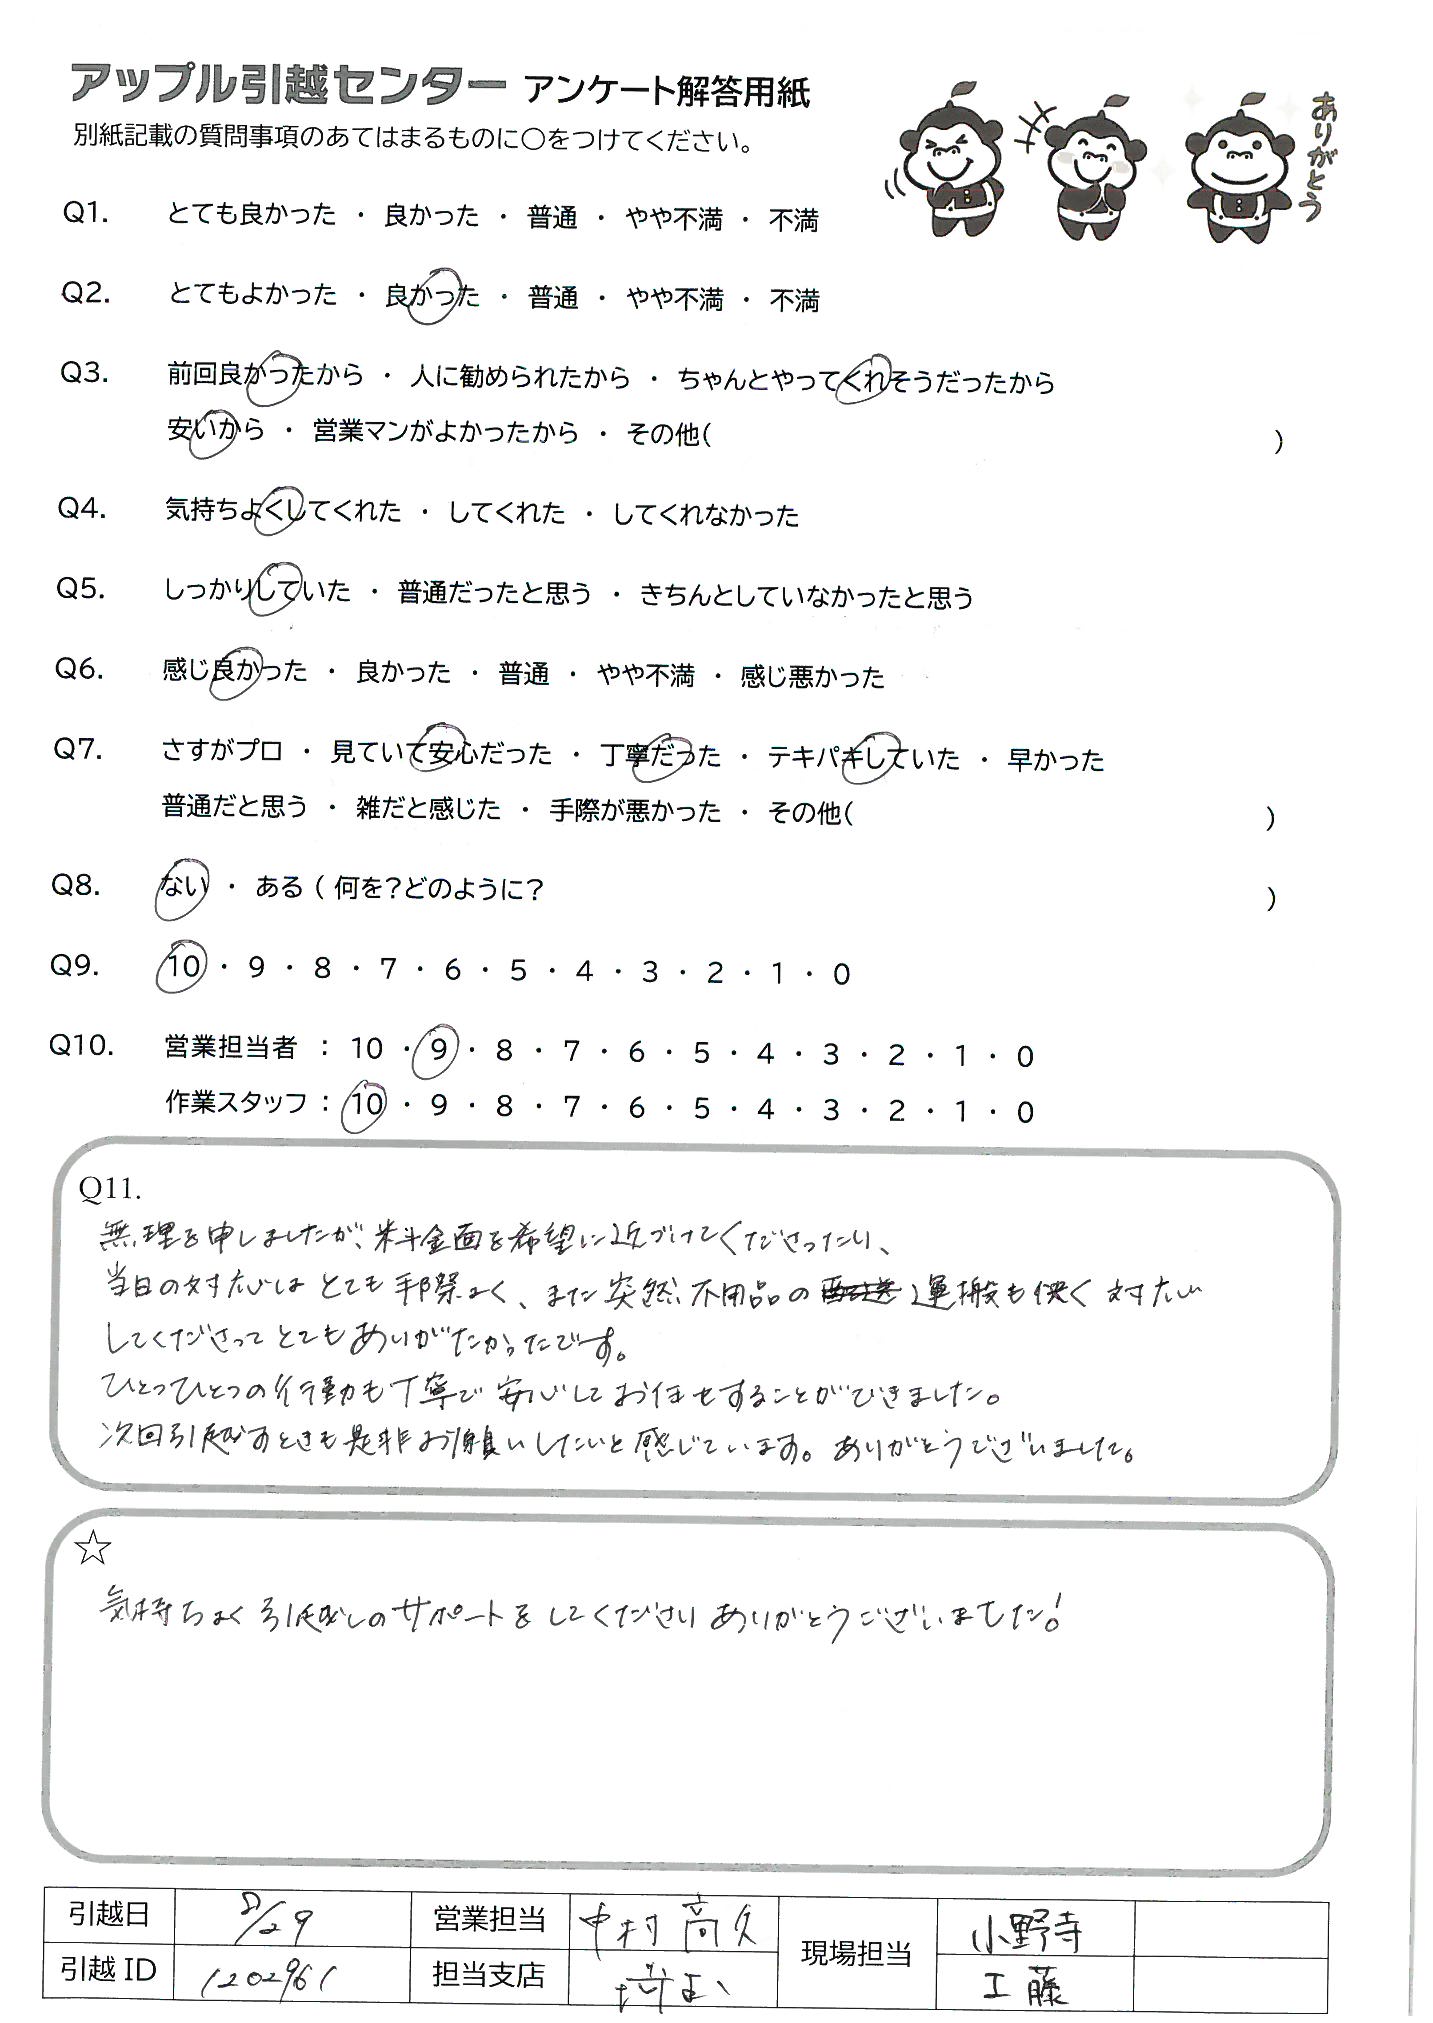 アップル引越センター アンケート解答用紙
別紙記載の質問事項のあてはまるものに○をつけてください。
ありがとう
Q1. とても良かった ・ 良かった ・ 普通 ・ やや不満 ・ 不満
Q2. とてもよかった ・ 良かった ・ 普通 ・ やや不満 ・ 不満
Q3. 前回良かったから ・ 人に勧められたから ・ ちゃんとやってくれそうだったから
安いから ・ 営業マンがよかったから ・ その他( )
Q4. 気持ちよくしてくれた ・ してくれた ・ してくれなかった
Q5. しっかりしていた ・ 普通だったと思う ・ きちんとしていなかったと思う
Q6. 感じ良かった ・ 良かった ・ 普通 ・ やや不満 ・ 感じ悪かった
Q7. さすがプロ ・ 見ていて安心だった ・ 丁寧だった ・ テキパキしていた ・ 早かった
普通だと思う ・ 雑だと感じた ・ 手際が悪かった ・ その他( )
Q8. ない ・ ある ( 何を?どのように? )
Q9. 10 ・ 9 ・ 8 ・ 7 ・ 6 ・ 5 ・ 4 ・ 3 ・ 2 ・ 1 ・ 0
Q10. 営業担当者 : 10 ・ 9 ・ 8 ・ 7 ・ 6 ・ 5 ・ 4 ・ 3 ・ 2 ・ 1 ・ 0
作業スタッフ : 10 ・ 9 ・ 8 ・ 7 ・ 6 ・ 5 ・ 4 ・ 3 ・ 2 ・ 1 ・ 0
Q11.
無理を申しましたが、料金面を希望に近づけてくださったり、
当日の対応はとても手際よく、また突然、不用品の運搬も快く対応
してくださってとてもありがたかったです。
ひとつひとつの行動も丁寧で安心してお任せすることができました。
次回引越すときも是非お願いしたいと感じています。ありがとうございました。
☆
気持ちよく引越しのサポートをしてくださいありがとうございました!
引越日 8/29 営業担当 中村 高久 現場担当 小野寺
引越 ID 1202961 担当支店 埼玉 工藤